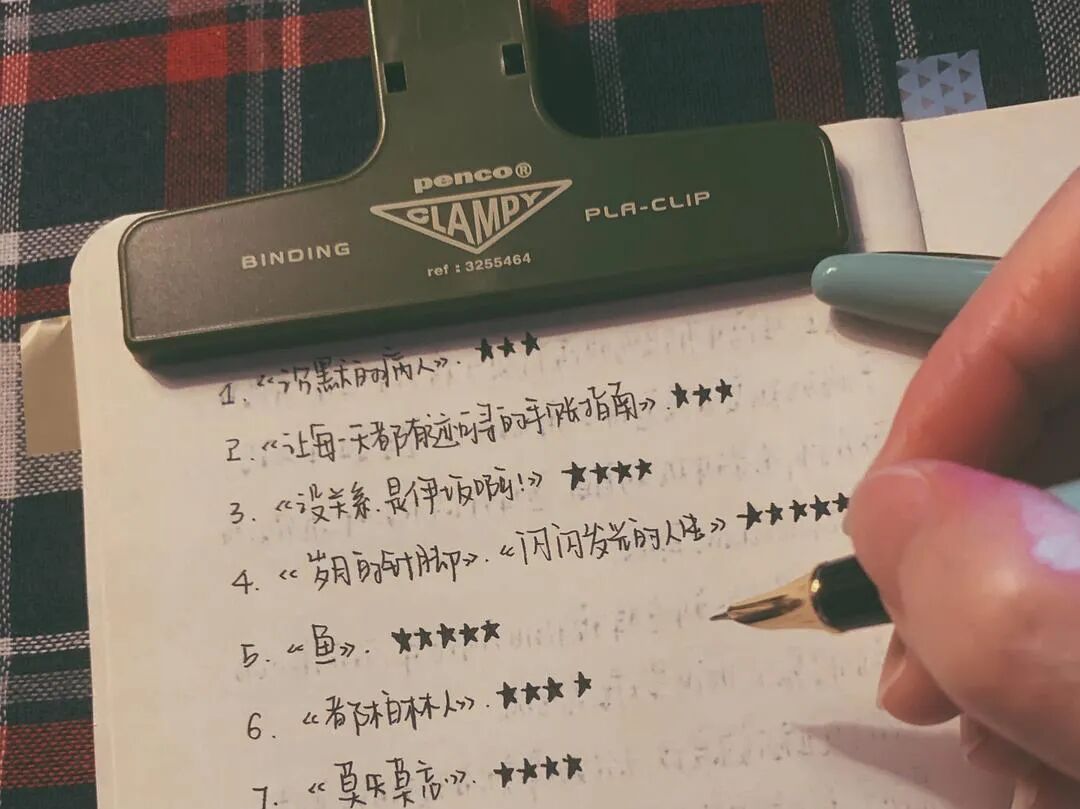 penco®
CLAMPY
BINDING
PLA-CLIP
ref : 3255464
1.《沉默的病人》. ★★★
2.《让每一天都有迹可寻的手账指南》. ★★★
3.《没关系.是伊坂啊!》 ★★★★
4.《岁月的针脚》.《闪闪发光的人生》 ★★★★★
5.《鱼》. ★★★★★
6.《都柏林人》. ★★★★
7.《莫失莫忘》. ★★★★